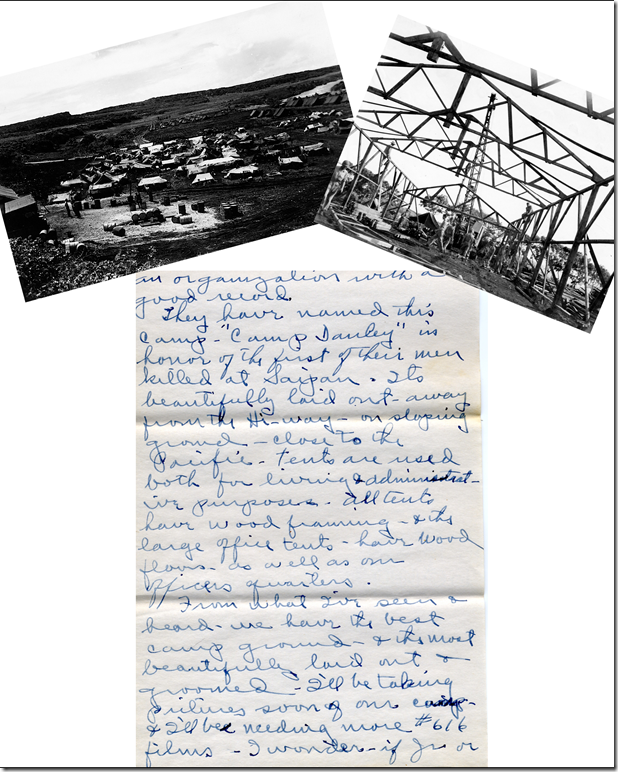 an organization with a
good record.
They have named this
camp - "Camp Danley" in
honor of the first of their men
killed at Saipan. Its
beautifully laid out - away
from the Hi-way - on sloping
ground - close to the
Pacific - tents are used
both for living & administrat-
ive purposes. All tents
have wood framing - & the
large office tents - have wood
floors - as well as our
officers quarters.
From what I've seen &
heard - we have the best
camp ground - & the most
beautifully laid out &
groomed - I'll be taking
pictures soon of our camp -
& I'll be needing more #616
films - I wonder - if Jr or